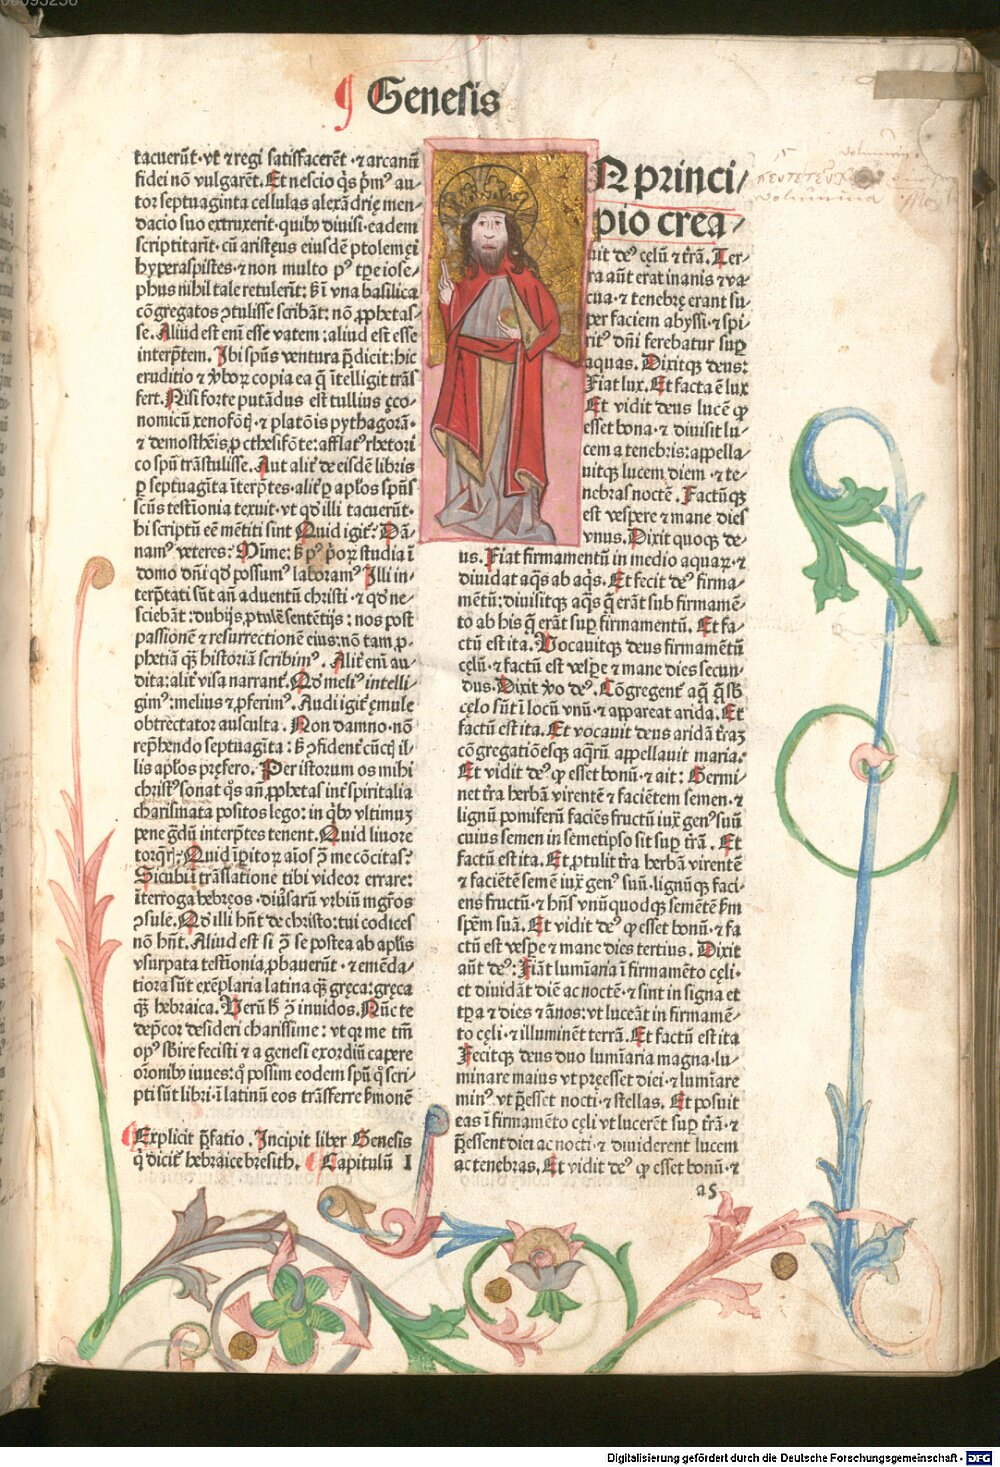 00095256
¶ Genesis
tacuerūt · vt ⁊ regi satisfacerēt · ⁊ arcanū
fidei nō vulgarēt. Et nescio q̄s pͥmꝰ au-
tor septuaginta cellulas alexādrię men-
dacio suo extruxerit · quibꝰ diuisi · eadem
scriptitarīt · cū aristęus eiusdē ptolemęi
hyperaspistes · ⁊ non multo pꝰ tpe iose-
phus nihil tale retulerīt: s̄ i vna basilica
cōgregatos ꝯtulisse scribāt: nō ꝓphetas-
se. Aliud est enī esse vatem: aliud est esse
interp̄tem. Ibi spūs ventura p̄dicit: hic
eruditio ⁊ v̓boꝝ copia ea q̄ ītelligit trās
fert. Nisi forte putādus est tullius ęco-
nomicū xenofōtꝭ · ⁊ platōis pythagorā ·
⁊ demosthēis ꝓ cthesifōte: afflatꝰ rhetori
co spū trāstulisse. Aut alit̓ de eisdē libris
ꝑ septuagīta īterp̄tes · alit̓ ꝑ aplōs spūs
scūs testīonia texuit · vt qđ illi tacuerūt ·
hi scriptū eē mētiti sint Quid igit̓? Dā-
namꝰ veteres? Mīme: s̄ pꝰ pͥoꝝ studia ī
domo dn̄i qđ possumꝰ laboramꝰ Illi in-
terp̄tati sūt an̄ aduentū christi · ⁊ qđ ne-
sciebāt: dubijs ꝓtulē sentētijs: nos post
passionē ⁊ resurrectionē eius: nō tam ꝓ-
phetiā qꝫ historiā scribimꝰ. Alit̓ enī au-
dita: alit̓ visa narrant̓. Qđ meliꝰ intelli-
gimꝰ: melius ⁊ ꝓferimꝰ. Audi igit̓ ęmule
obtrectator ausculta. Non damno · nō
rep̄hendo septuagīta: s̄ ꝯfident̓ cūctꝭ il-
lis aplōs pręfero. Per istorum os mihi
christꝰ sonat q̊s an̄ ꝓphetas int̓ spiritalia
charismata positos lego: in q̇bꝰ vltimuꝫ
pene g̈dū interp̄tes tenent. Quid liuore
torq̄ris? Quid īp̄itoꝝ aīos ꝯ̄ me cōcitas?
Sicubi ī trāslatione tibi videor errare:
īterroga hebręos · diū̓saꝝ vrbiū mgr̄os
ꝯsule. Qđ illi hn̄t de christo: tui codices
nō hn̄t. Aliud est si ꝯ̄ se postea ab aplīs
vsurpata testīonia ꝓbauerūt · ⁊ emēda-
tiora sūt exēplaria latina qꝫ gręca: gręca
qꝫ hebraica. Verū h̄ ꝯ̄ inuidos. Nūc te
dep̄cor desideri charissime: vt qꝛ me tm̄
opꝰ sbire fecisti ⁊ a genesi exordiū capere
orōnibꝰ iuues: q̊ possim eodem spū q̊ scri-
pti sūt libri · ī latinū eos trāsferre s̄monē
¶ Explicit p̄fatio. Incipit liber Genesis
q̄ dicit̓ hebraice bresith. ¶ Capitulū I
N princi/
pio crea/
uit deꝰ cęlū ⁊ tr̄ā. Ter-
ra aūt erat inanis ⁊ va
cua · ⁊ tenebrę erant su-
per faciem abyssi · ⁊ spi-
ritꝰ dn̄i ferebatur suꝑ
aquas. Dixitqꝫ deus:
Fiat lux. Et facta ē lux
Et vidit deus lucē ꝙ
esset bona · ⁊ diuisit lu-
cem a tenebris: appella-
uitqꝫ lucem diem · ⁊ te-
nebras noctē. Factūqꝫ
est vespere ⁊ mane dies
vnus. Dixit quoqꝫ de-
us. Fiat firmamentū in medio aquaꝝ · ⁊
diuidat aq̄s ab aq̄s. Et fecit deꝰ firma-
mētū: diuisitqꝫ aq̄s q̄ erāt sub firmamē-
to ab his q̄ erāt suꝑ firmamentū. Et fa-
ctū est ita. Vocauitqꝫ deus firmamētū
cęlū · ⁊ factū est vesꝑe ⁊ mane dies secun-
dus. Dixit v̓o deꝰ. Cōgregent̓ aq̄ q̄ sb̄
cęlo sūt ī locū vnū · ⁊ appareat arida. Et
factū est ita. Et vocauit deus aridā tr̄aꝫ
cōgregatiōesqꝫ aq̄rū appellauit maria.
Et vidit deꝰ ꝙ esset bonū · ⁊ ait: Germi-
net tr̄a herbā virentē ⁊ faciētem semen · ⁊
lignū pomiferū faciēs fructū iux̄ genꝰ suū
cuius semen in semetipso sit suꝑ tr̄ā. Et
factū est ita. Et ꝓtulit tr̄a herbā virentē
⁊ faciētē semē iux̄ genꝰ suū · lignūqꝫ faci-
ens fructū · ⁊ hn̄s vnūquodqꝫ semētē s̄m
spēm suā. Et vidit deꝰ ꝙ esset bonū · ⁊ fa
ctū est vesꝑe ⁊ mane dies tertius. Dixit
aūt deꝰ: Fiāt lumīaria ī firmamēto cęli ·
et diuidāt diē ac noctē · ⁊ sint in signa et
tꝑa ⁊ dies ⁊ ānos: vt luceāt in firmamē-
to cęli · ⁊ illuminēt terrā. Et factū est ita
Fecitqꝫ deus duo lumīaria magna · lu-
minare maius vt pręesset diei · ⁊ lumīare
minꝰ vt p̄esset nocti · ⁊ stellas. Et posuit
eas ī firmamēto cęli vt lucerēt suꝑ tr̄ā · ⁊
p̄essent diei ac nocti · ⁊ diuiderent lucem
ac tenebras. Et vidit deꝰ ꝙ esset bonū · ⁊
a5
Digitalisierung gefördert durch die Deutsche Forschungsgemeinschaft - DFG